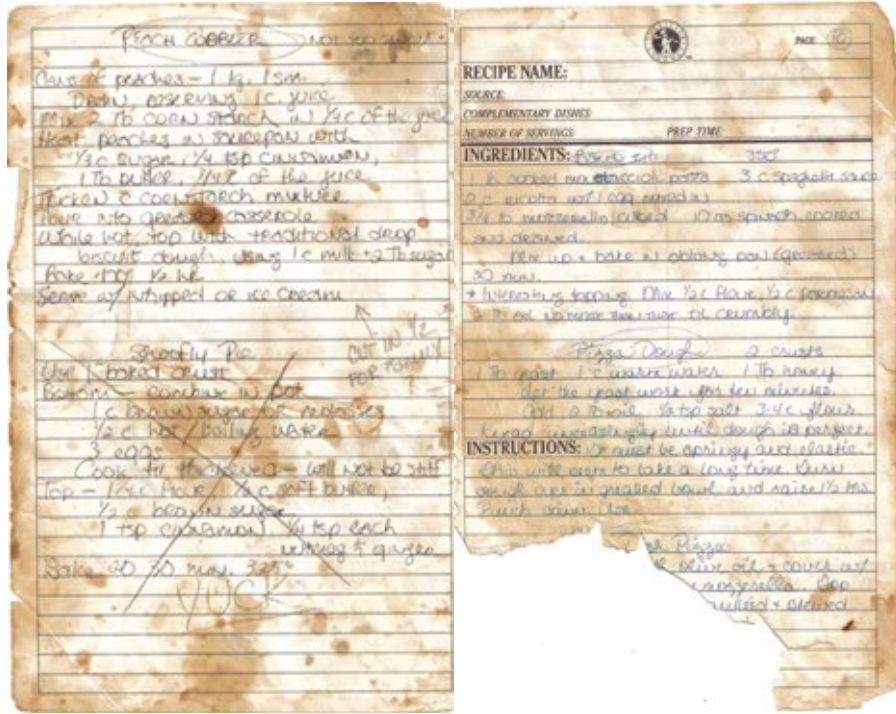 PEACH COBBLER NOT TOO
Cans of peaches - 1 lg, 1 sm.
Drain, reserving 1 c. juice
Mix 2 Tb corn starch in 1/4 c of the juice
Heat peaches in saucepan with
1/3 c sugar, 1/4 tsp cinnamon,
1 Tb butter, of the juice
Thicken c cornstarch mixture
Pour into greased casserole
While hot, top with traditional drop
biscuit dough using 1 c milk + 2 Tb sugar
Bake 400° 1/2 hr
Serve w/ whipped or ice cream
CUT IN 1/2
FOR FAMILY
?
Shoofly Pie
Use 1 baked crust
Bottom - combine in pot
1 c brown sugar or molasses
1/2 c hot / boiling water
3 eggs
Cook til thickened - will not be stiff
Top - flour soft butter,
1/2 c brown sugar
1 tsp cinnamon, 1/4 tsp each
nutmeg & ginger
Bake 20-30 min. 325°
YUCK
PAGE 10
RECIPE NAME:
SOURCE:
COMPLEMENTARY DISHES:
NUMBER OF SERVINGS: PREP TIME:
INGREDIENTS: Baked ziti 350°
1 lb cooked mostaccioli pasta 3 c spaghetti sauce
2 c ricotta w/ 1 egg mixed in
3/4 lb mozzarella cubed 10 oz spinach, cooked
and drained.
Mix up & bake in oblong pan (greased)
30 min.
* Interesting topping Mix 1/2 c flour, 1/2 c parmesan,
til crumbly.
Pizza Dough 2 crusts
1 Tb yeast 1 c warm water 1 Tb honey
Let the yeast work for ten minutes.
Add 2 Tb oil 1/2 tsp salt 3-4 c flour
Knead unceasingly until dough is perfect.
INSTRUCTIONS: It must be springy and elastic.
This will seem to take a long time. Turn
dough over in greased bowl and raise 1 1/2 hrs
Punch down. Use
Pizza
olive oil & cover w/
mozzarella. Top